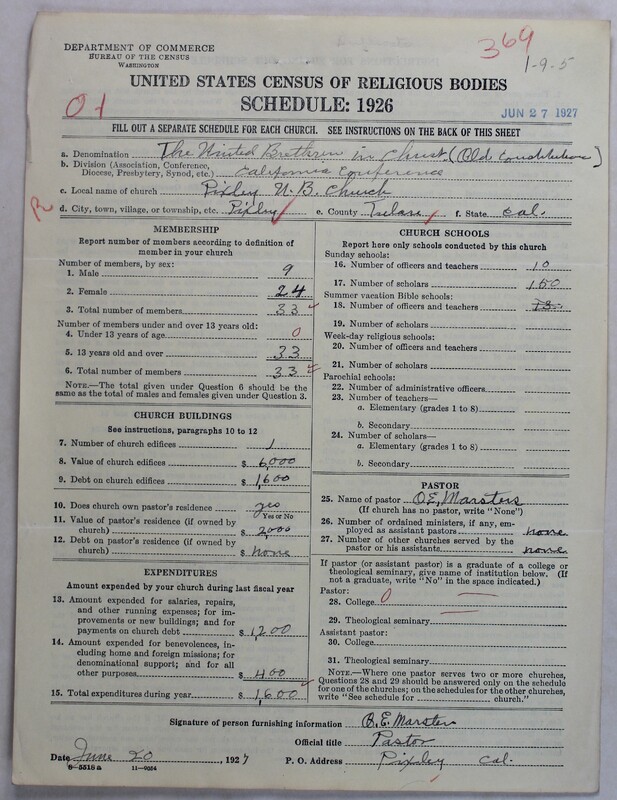 DEPARTMENT OF COMMERCE
BUREAU OF THE CENSUS
WASHINGTON
369
1-9-5
UNITED STATES CENSUS OF RELIGIOUS BODIES
SCHEDULE: 1926
01
JUN 27 1927
FILL OUT A SEPARATE SCHEDULE FOR EACH CHURCH. SEE INSTRUCTIONS ON THE BACK OF THIS SHEET
a. Denomination The United Brethren in Christ (Old Constitution)
b. Division (Association, Conference,
Diocese, Presbytery, Synod, etc.) California Conference
c. Local name of church Pixley U. B. Church
R
d. City, town, village, or township, etc. Pixley e. County Tulare f. State Cal.
MEMBERSHIP
Report number of members according to definition of
member in your church
Number of members, by sex:
1. Male 9
2. Female 24
3. Total number of members 33
Number of members under and over 13 years old:
4. Under 13 years of age 0
5. 13 years old and over 33
6. Total number of members 33
NOTE.—The total given under Question 6 should be the
same as the total of males and females given under Question 3.
CHURCH BUILDINGS
See instructions, paragraphs 10 to 12
7. Number of church edifices 1
8. Value of church edifices $ 6,000
9. Debt on church edifices $ 1600
10. Does church own pastor's residence yes
Yes or No
11. Value of pastor's residence (if owned by
church) $ 2000
12. Debt on pastor's residence (if owned by
church) $ None
EXPENDITURES
Amount expended by your church during last fiscal year
13. Amount expended for salaries, repairs,
and other running expenses; for im-
provements or new buildings; and for
payments on church debt $ 1200
14. Amount expended for benevolences, in-
cluding home and foreign missions; for
denominational support; and for all
other purposes $ 400
15. Total expenditures during year $ 1,600
CHURCH SCHOOLS
Report here only schools conducted by this church
Sunday schools:
16. Number of officers and teachers 10
17. Number of scholars 150
Summer vacation Bible schools:
18. Number of officers and teachers
19. Number of scholars
Week-day religious schools:
20. Number of officers and teachers
21. Number of scholars
Parochial schools:
22. Number of administrative officers
23. Number of teachers—
a. Elementary (grades 1 to 8)
b. Secondary
24. Number of scholars—
a. Elementary (grades 1 to 8)
b. Secondary
PASTOR
25. Name of pastor O.E, Marsters
(If church has no pastor, write "None")
26. Number of ordained ministers, if any, em-
ployed as assistant pastors none
27. Number of other churches served by the
pastor or his assistants none
If pastor (or assistant pastor) is a graduate of a college or
theological seminary, give name of institution below. (If
not a graduate, write "No" in the space indicated.)
Pastor:
28. College 0
29. Theological seminary
Assistant pastor:
30. College
31. Theological seminary
NOTE.—Where one pastor serves two or more churches,
Questions 28 and 29 should be answered only on the schedule
for one of the churches; on the schedules for the other churches,
write "See schedule for church."
Signature of person furnishing information
Official title Pastor
Date June 20, 1927 P. O. Address Pixley Cal.
8—5518a 11—9054